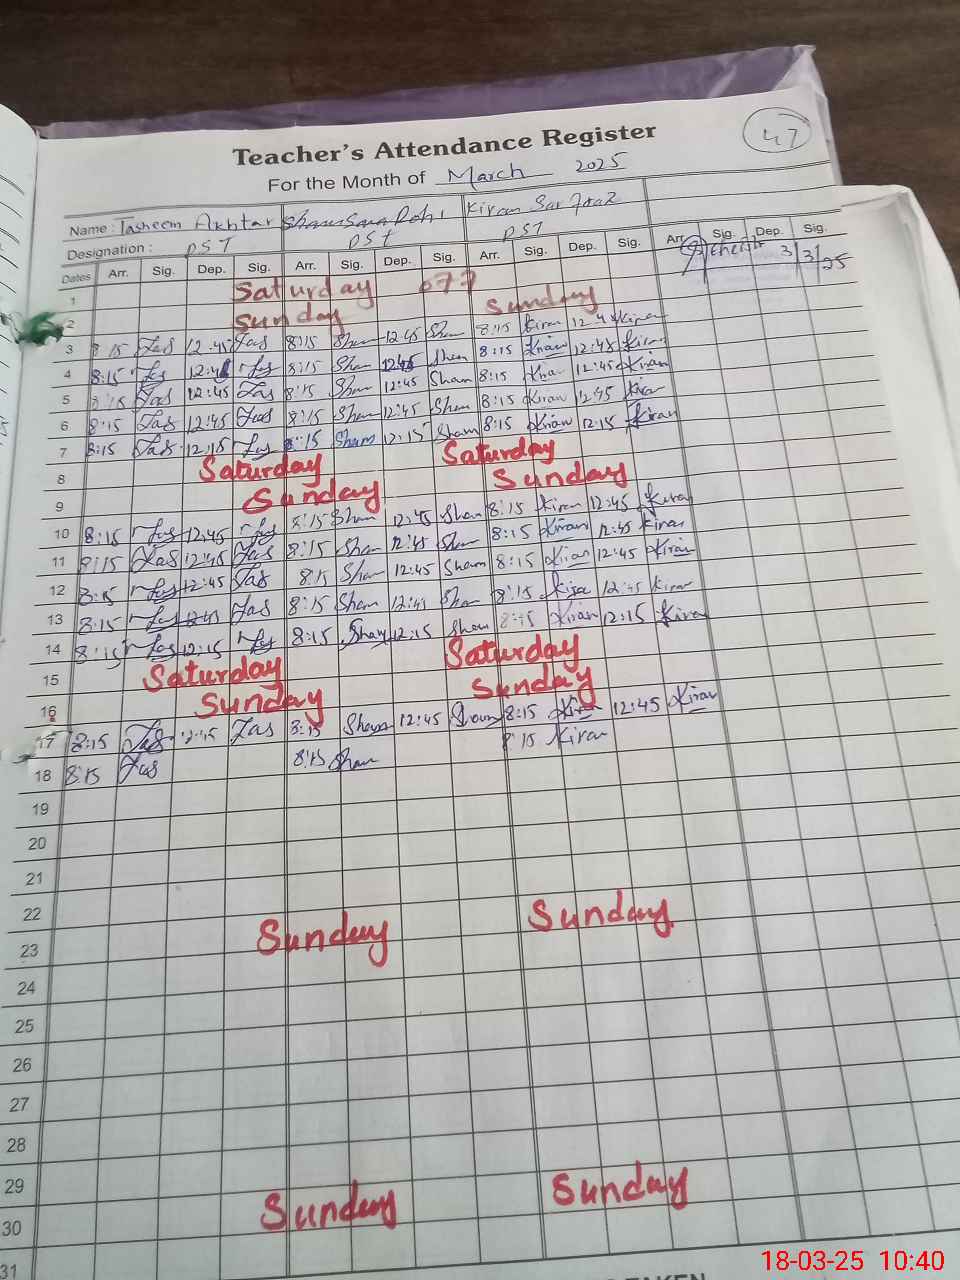 47
Teacher's Attendance Register
For the Month of March 2025
Name : Tasneem Akhtar Kiran Sarfraz
Designation : PST PST PST
Dates Arr. Sig. Dep. Sig. Arr. Sig. Dep. Sig. Arr. Sig. Dep. Sig. Arr. Sig. Dep. Sig.
3/3/25
1 Saturday
2 Sunday Sunday
3 8:15 Tas 12:45 Tas 8:15 Sham 12:45 Sham 8:15 Kiran 12:45 Kiran
4 8:15 Tas 12:45 Tas 8:15 Sham 12:45 Sham 8:15 Kiran 12:45 Kiran
5 8:15 Tas 12:45 Tas 8:15 Sham 12:45 Sham 8:15 Kiran 12:45 Kiran
6 8:15 Tas 12:45 Tas 8:15 Sham 12:45 Sham 8:15 Kiran 12:45 Kiran
7 8:15 Tas 12:15 Tas 8:15 Sham 12:15 Sham 8:15 Kiran 12:15 Kiran
8 Saturday Saturday
9 Sunday Sunday
10 8:15 Tas 12:45 Tas 8:15 Sham 12:45 Sham 8:15 Kiran 12:45 Kiran
11 8:15 Tas 12:45 Tas 8:15 Sham 12:45 Sham 8:15 Kiran 12:45 Kiran
12 8:15 Tas 12:45 Tas 8:15 Sham 12:45 Sham 8:15 Kiran 12:45 Kiran
13 8:15 Tas 12:45 Tas 8:15 Sham 12:45 Sham 8:15 Kiran 12:45 Kiran
14 8:15 Tas 12:15 Tas 8:15 Sham 12:15 Sham 8:15 Kiran 12:15 Kiran
15 Saturday Saturday
16 Sunday Sunday
17 8:15 Tas 12:45 Tas 8:15 Sham 12:45 Sham 8:15 Kiran 12:45 Kiran
18 8:15 Tas 8:15 Sham 8:15 Kiran
19
20
21
22
23 Sunday Sunday
24
25
26
27
28
29
30 Sunday Sunday
31
18-03-25 10:40